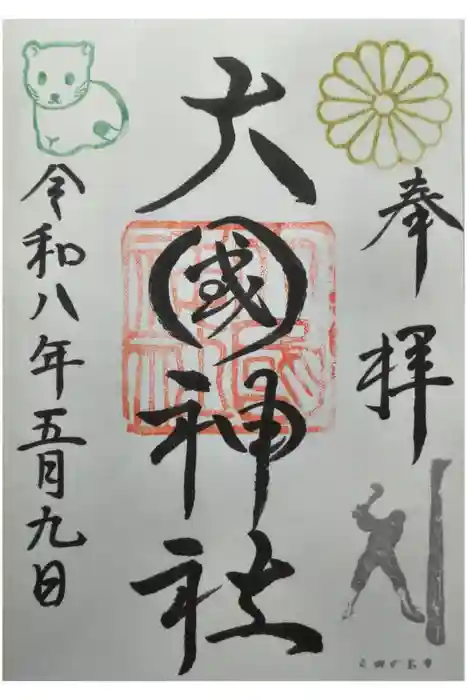 奉拝
大國神社
令和八年五月九日